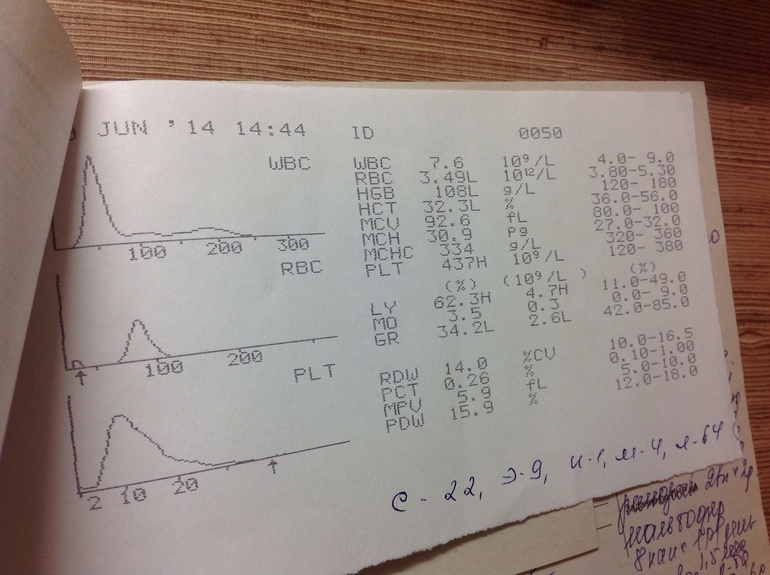 JUN '14 14:44 ID 0050
WBC
WBC 7.6 10⁹/L 4.0- 9.0
RBC 3.49L 10¹²/L 3.80-5.30
HGB 108L g/L 120- 180
HCT 32.3L % 36.0-56.0
MCV 92.6 fL 80.0- 100
MCH 30.9 Pg 27.0-32.0
MCHC 334 g/L 320- 360
PLT 437H 10⁹/L 120- 380
100 200 300
RBC
(%) (10⁹/L ) (%)
LY 62.3H 4.7H 11.0-49.0
MO 3.5 0.3 0.0- 9.0
GR 34.2L 2.6L 42.0-85.0
100 200
PLT
RDW 14.0 %CV 10.0-16.5
PCT 0.26 % 0.10-1.00
MPV 5.9 fL 5.0-10.0
PDW 15.9 % 12.0-18.0
2 10 20
с - 22, э-9, п-1, м-4, л-64